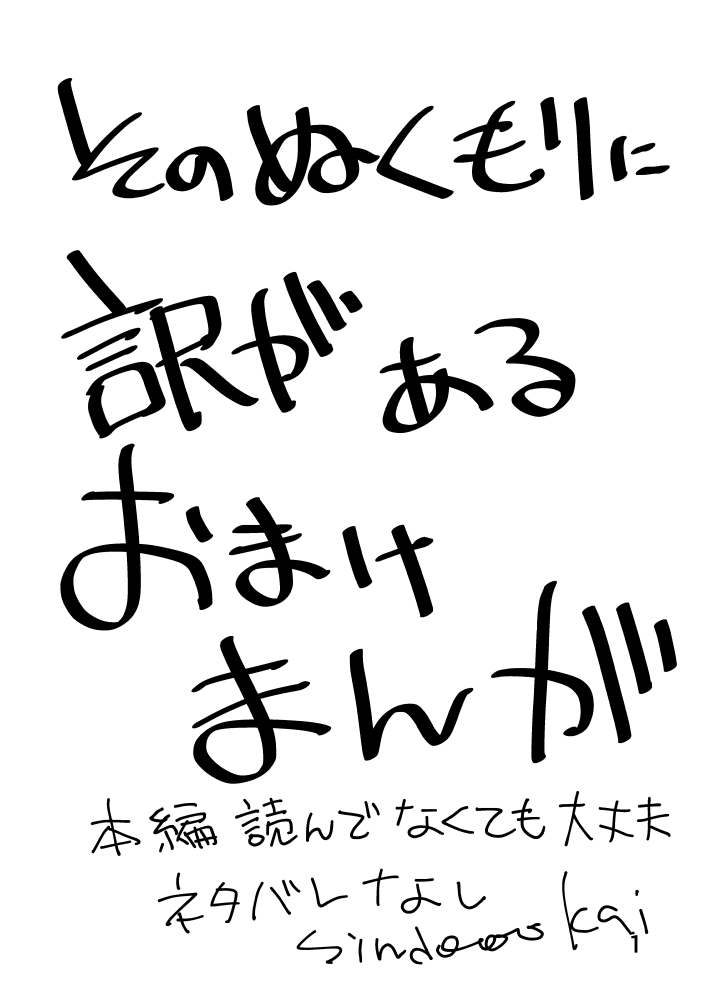 そのぬくもりに
訳がある
おまけ
まんが
本編読んでなくても大丈夫
ネタバレなし